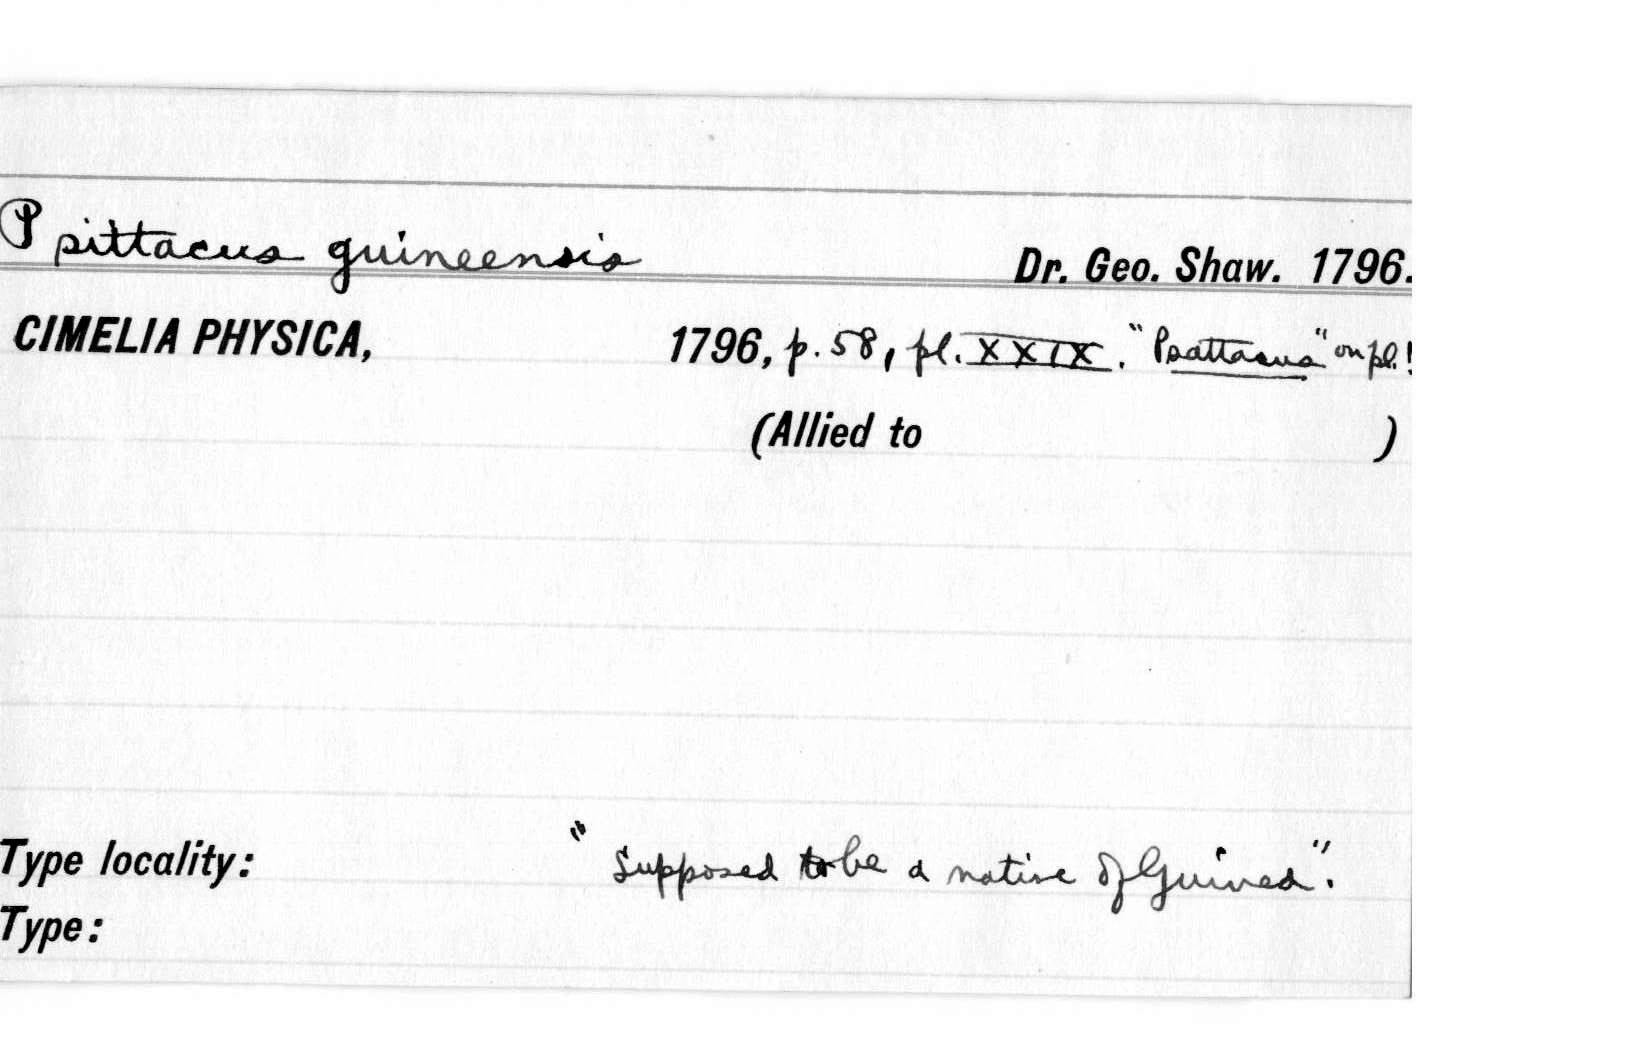 Psittacus guineensis Dr. Geo. Shaw. 1796.
CIMELIA PHYSICA, 1796, p. 58, pl. XXIX. "Psattacus" on pl.!
(Allied to )
Type locality: "Supposed to be a native of Guinea".
Type: